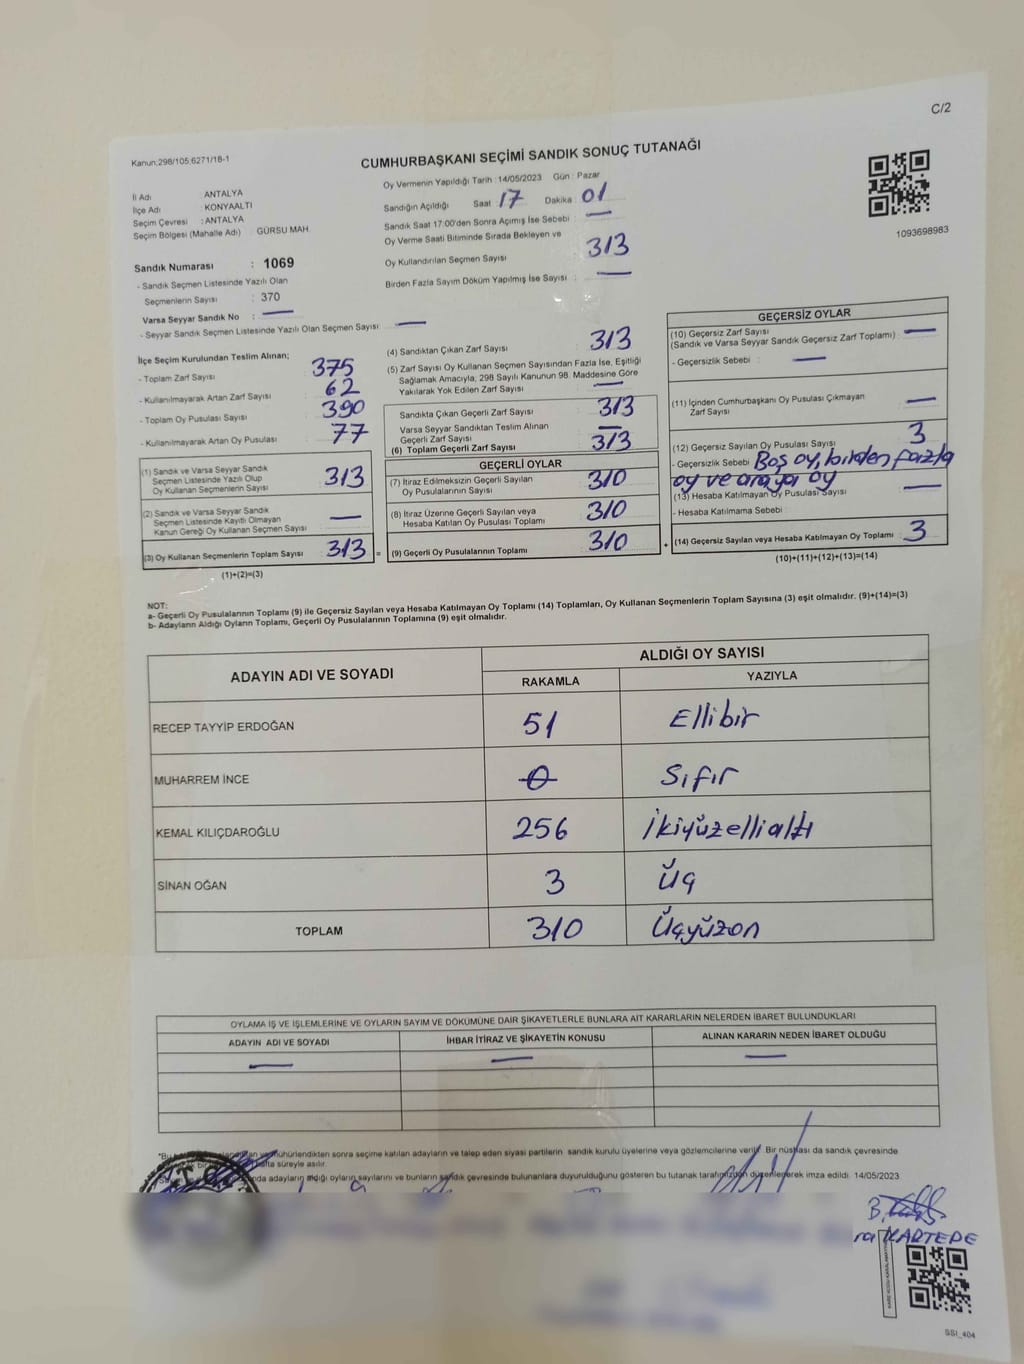 C/2
Kanun;298/105;6271/18-1
CUMHURBAŞKANI SEÇİMİ SANDIK SONUÇ TUTANAĞI
İl Adı : ANTALYA
İlçe Adı : KONYAALTI
Seçim Çevresi : ANTALYA
Seçim Bölgesi (Mahalle Adı) : GÜRSU MAH.
Oy Vermenin Yapıldığı Tarih : 14/05/2023 Gün : Pazar
Sandığın Açıldığı Saat : 17 Dakika : 01
Sandık Saat 17:00'den Sonra Açımış İse Sebebi : —
Oy Verme Saati Bitiminde Sırada Bekleyen ve
Oy Kullandırılan Seçmen Sayısı 313
Birden Fazla Sayım Döküm Yapılmış İse Sayısı : —
1093698983
Sandık Numarası : 1069
- Sandık Seçmen Listesinde Yazılı Olan
Seçmenlerin Sayısı : 370
Varsa Seyyar Sandık No : —
- Seyyar Sandık Seçmen Listesinde Yazılı Olan Seçmen Sayısı: —
İlçe Seçim Kurulundan Teslim Alınan;
- Toplam Zarf Sayısı 375
- Kullanılmayarak Artan Zarf Sayısı 62
- Toplam Oy Pusulası Sayısı 390
- Kullanılmayarak Artan Oy Pusulası 77
(1) Sandık ve Varsa Seyyar Sandık
Seçmen Listesinde Yazılı Olup
Oy Kullanan Seçmenlerin Sayısı 313
(2) Sandık ve Varsa Seyyar Sandık
Seçmen Listesinde Kayıtlı Olmayan
Kanun Gereği Oy Kullanan Seçmen Sayısı —
(3) Oy Kullanan Seçmenlerin Toplam Sayısı 313 =
(1)+(2)=(3)
(4) Sandıktan Çıkan Zarf Sayısı 313
(5) Zarf Sayısı Oy Kullanan Seçmen Sayısından Fazla İse, Eşitliği
Sağlamak Amacıyla, 298 Sayılı Kanunun 98. Maddesine Göre
Yakılarak Yok Edilen Zarf Sayısı —
Sandıkta Çıkan Geçerli Zarf Sayısı 313
Varsa Seyyar Sandıktan Teslim Alınan
Geçerli Zarf Sayısı —
(6) Toplam Geçerli Zarf Sayısı 313
GEÇERLİ OYLAR
(7) İtiraz Edilmeksizin Geçerli Sayılan
Oy Pusulalarının Sayısı 310
(8) İtiraz Üzerine Geçerli Sayılan veya
Hesaba Katılan Oy Pusulası Toplamı 310
(9) Geçerli Oy Pusulalarının Toplamı 310 +
GEÇERSİZ OYLAR
(10) Geçersiz Zarf Sayısı
(Sandık ve Varsa Seyyar Sandık Geçersiz Zarf Toplamı) : —
- Geçersizlik Sebebi : —
(11) İçinden Cumhurbaşkanı Oy Pusulası Çıkmayan
Zarf Sayısı —
(12) Geçersiz Sayılan Oy Pusulası Sayısı 3
- Geçersizlik Sebebi Boş oy, birden fazla
oy ve araya oy
(13) Hesaba Katılmayan Oy Pusulası Sayısı —
- Hesaba Katılmama Sebebi :
(14) Geçersiz Sayılan veya Hesaba Katılmayan Oy Toplamı : 3
(10)+(11)+(12)+(13)=(14)
NOT:
a- Geçerli Oy Pusulalarının Toplamı (9) ile Geçersiz Sayılan veya Hesaba Katılmayan Oy Toplamı (14) Toplamları, Oy Kullanan Seçmenlerin Toplam Sayısına (3) eşit olmalıdır. (9)+(14)=(3)
b- Adayların Aldığı Oyların Toplamı, Geçerli Oy Pusulalarının Toplamına (9) eşit olmalıdır.
ADAYIN ADI VE SOYADI ALDIĞI OY SAYISI
RAKAMLA YAZIYLA
RECEP TAYYİP ERDOĞAN 51 Ellibir
MUHARREM İNCE 0 Sıfır
KEMAL KILIÇDAROĞLU 256 İkiyüzellialtı
SİNAN OĞAN 3 Üç
TOPLAM 310 Üçyüzon
OYLAMA İŞ VE İŞLEMLERİNE VE OYLARIN SAYIM VE DÖKÜMÜNE DAİR ŞİKAYETLERLE BUNLARA AİT KARARLARIN NELERDEN İBARET BULUNDUKLARI
ADAYIN ADI VE SOYADI İHBAR İTİRAZ VE ŞİKAYETİN KONUSU ALINAN KARARIN NEDEN İBARET OLDUĞU
— — —
*Bu mühürlendikten sonra seçime katılan adayların ve talep eden siyasi partilerin sandık kurulu üyelerine veya gözlemcilerine verilir. Bir nüshası da sandık çevresinde
bir hafta süreyle asılır.
adayların aldığı oyların sayılarını ve bunların sandık çevresinde bulunanlara duyurulduğunu gösteren bu tutanak tarafımızdan düzenlenerek imza edildi. 14/05/2023
T.C.
KARTEPE
SSI_404